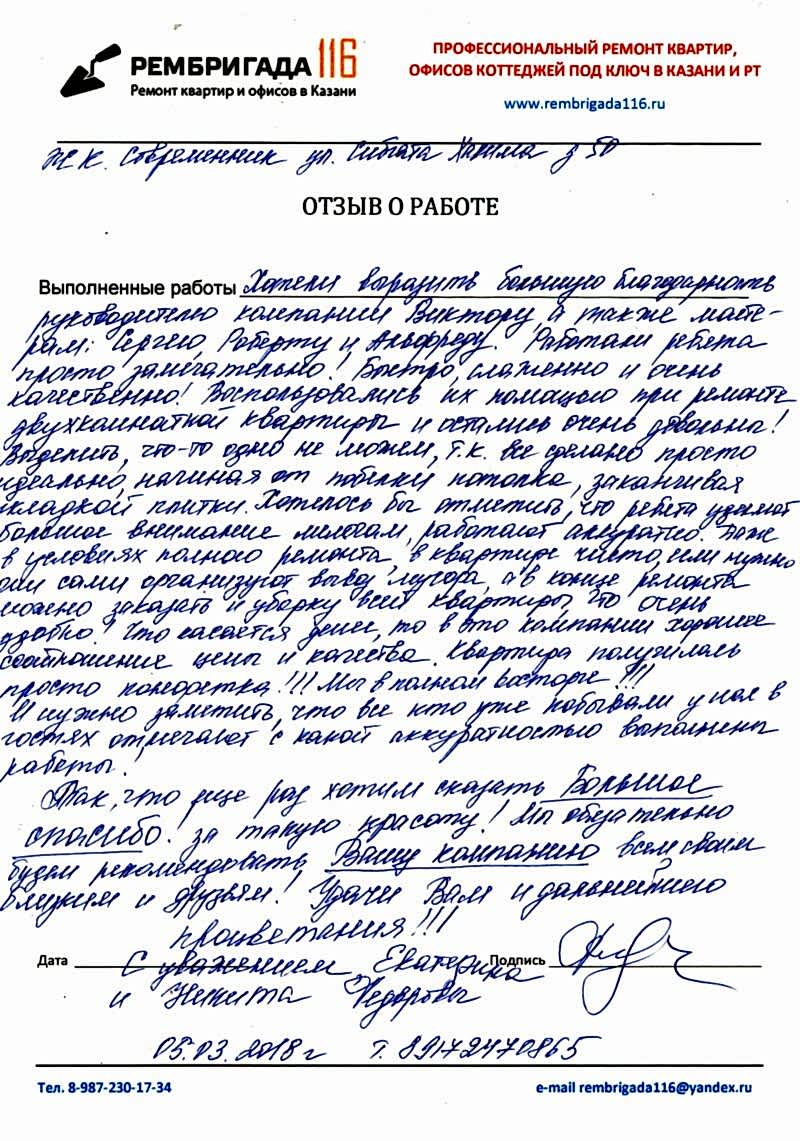 РЕМБРИГАДА 116
Ремонт квартир и офисов в Казани
ПРОФЕССИОНАЛЬНЫЙ РЕМОНТ КВАРТИР,
ОФИСОВ КОТТЕДЖЕЙ ПОД КЛЮЧ В КАЗАНИ И РТ
www.rembrigada116.ru
ЖК. Современник ул. Сибгата Хакима д 50
ОТЗЫВ О РАБОТЕ
Выполненные работы Хотели выразить большую благодарность
руководителю компании Виктору, а также масте-
рам: Сергею, Роберту и Альфреду. Работали ребята
просто замечательно! Быстро, слаженно и очень
качественно! Воспользовались их помощью при ремонте
двухкомнатной квартиры и остались очень довольны!
Выделить, что-то одно не можем, т.к. все сделано просто
идеально, начиная от побелки потолка, заканчивая
кладкой плитки. Хотелось бы отметить, что ребята уделяют
большое внимание мелочам, работают аккуратно. Даже
в условиях полного ремонта, в квартире чисто, если нужно
они сами организуют вывоз мусора, а в конце ремонта
можно заказать и уборку всей квартиры, что очень
удобно! Что касается денег, то в это компании хорошее
соотношение цены и качества. Квартира получилась
просто конфетка!!! Мы в полном восторге!!!
И нужно заметить, что все кто уже побывали у нас в
гостях отмечают с какой аккуратностью выполнены
работы.
Так, что еще раз хотим сказать Большое
спасибо! за такую красоту! Мы обязательно
будем рекомендовать Вашу компанию всем своим
близким и друзьям! Удачи Вам и дальнейшего
процветания!!!
Дата С уважением, Екатерина Подпись
и Никита Федоровы
05.03.2018г т. 89172470865
Тел. 8-987-230-17-34
e-mail rembrigada116@yandex.ru